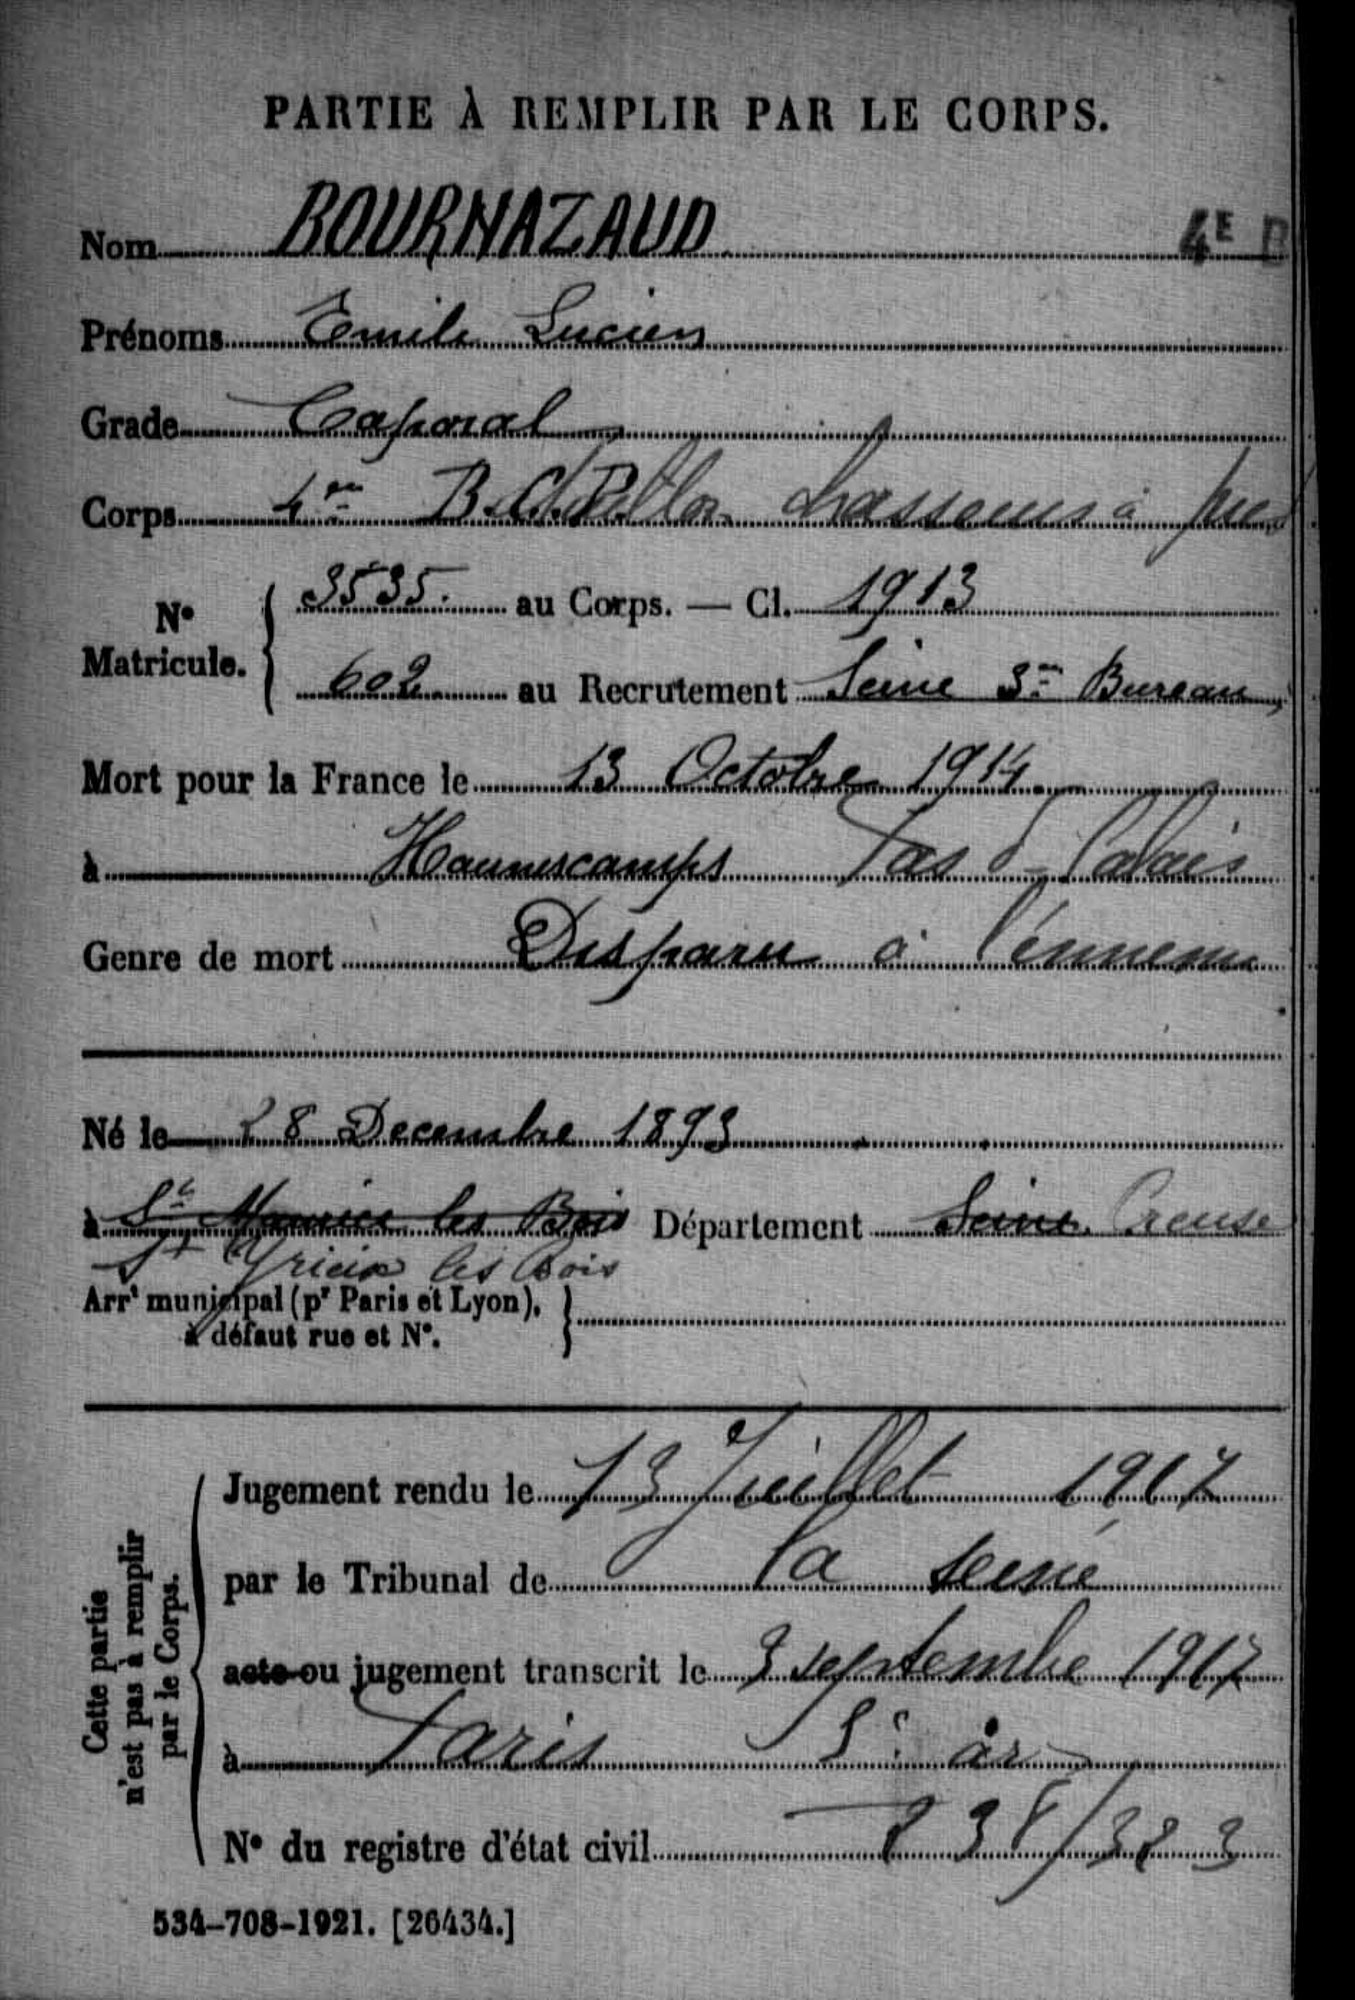 PARTIE À REMPLIR PAR LE CORPS.
Nom BOURNAZAUD 4E B
Prénoms Emile Lucien
Grade Caporal
Corps 4me chasseurs à pied
No Matricule. 3535. au Corps. — Cl. 1913
602 au Recrutement Seine 3me Bureau
Mort pour la France le 13 Octobre 1914
à Hannescamps Pas d Calais
Genre de mort Disparu à l'ennemi
Né le 28 Decembre 1893
à St Maurice les Bois Département Seine Creuse
St Yrieix les Bois
Arrt municipal (pr Paris et Lyon),
à défaut rue et No.
Cette partie
n'est pas à remplir
par le Corps.
Jugement rendu le 13 Juillet 1917
par le Tribunal de la Seine
acte ou jugement transcrit le 3 septembre 1917
à Paris ar
No du registre d'état civil
534-708-1921. [26434.]